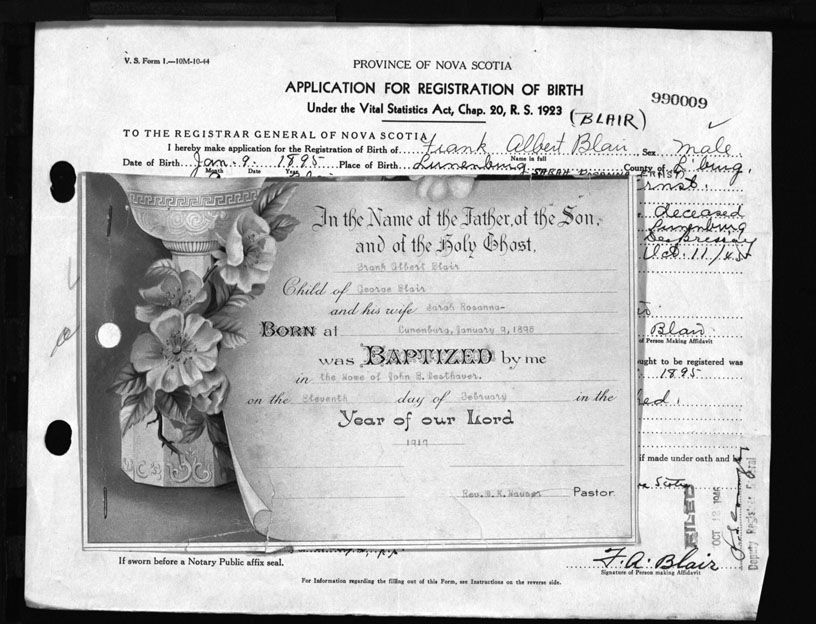 V. S. Form 1.—10M-10-44
PROVINCE OF NOVA SCOTIA
APPLICATION FOR REGISTRATION OF BIRTH
990009
Under the Vital Statistics Act, Chap. 20, R. S. 1923 (BLAIR)
TO THE REGISTRAR GENERAL OF NOVA SCOTIA
I hereby make application for the Registration of Birth of Frank Albert Blair Sex male
Name in full
Date of Birth Jan. 9. 1895 Place of Birth Lunenburg County of L'burg.
Month Date Year
SARAH
Ernst.
deceased
Lunenburg
Oct. 11/45
In the Name of the Father, of the Son,
and of the Holy Ghost.
Frank Albert Blair
Child of George Blair
and his wife Sarah Rosanna-
BORN at Lunenburg, January 9, 1898
was BAPTIZED by me
in the Home of John E. Westhaver.
on the Eleventh day of February in the
Year of our Lord
1917
Rev. Pastor
Blair
of Person Making Affidavit
ought to be registered was
1895
if made under oath and
FILED
OCT 12 1945
Deputy Registrar General
If sworn before a Notary Public affix seal.
F. A. Blair
Signature of Person making Affidavit
For Information regarding the filling out of this Form, see Instructions on the reverse side.